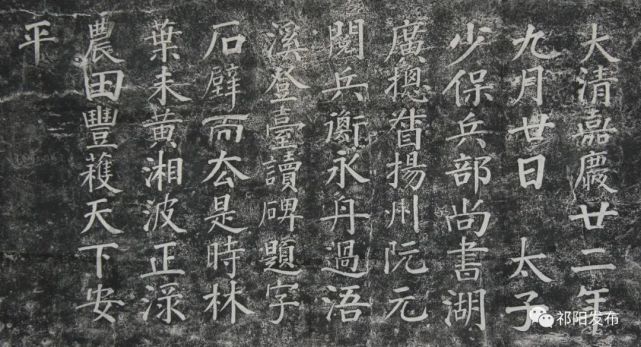 大清嘉慶廿二年
九月廿日 太子
少保兵部尚書湖
廣總督揚州阮元
閱兵衡永舟過浯
溪登臺讀碑題字
石壁而去是時林
葉未黃湘波正渌
農田豐穫天下安
平
祁阳发布